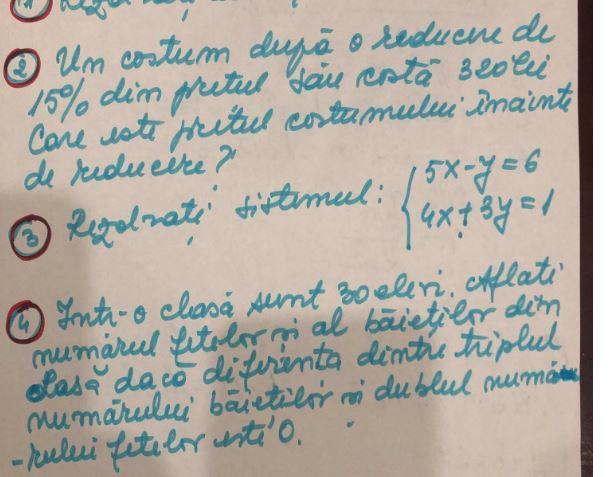 2 Un costum după o reducere de
15% din prețul său costă 320 lei
Care este prețul costumului înainte
de reducere?
3 Rezolvați sistemul: { 5x-y=6
4x+3y=1
4 Într-o clasă sunt 30 elevi. Aflati
numărul fetelor și al băieților din
clasă dacă diferența dintre triplul
numărului băieților și dublul numă
-rului fetelor este 0.